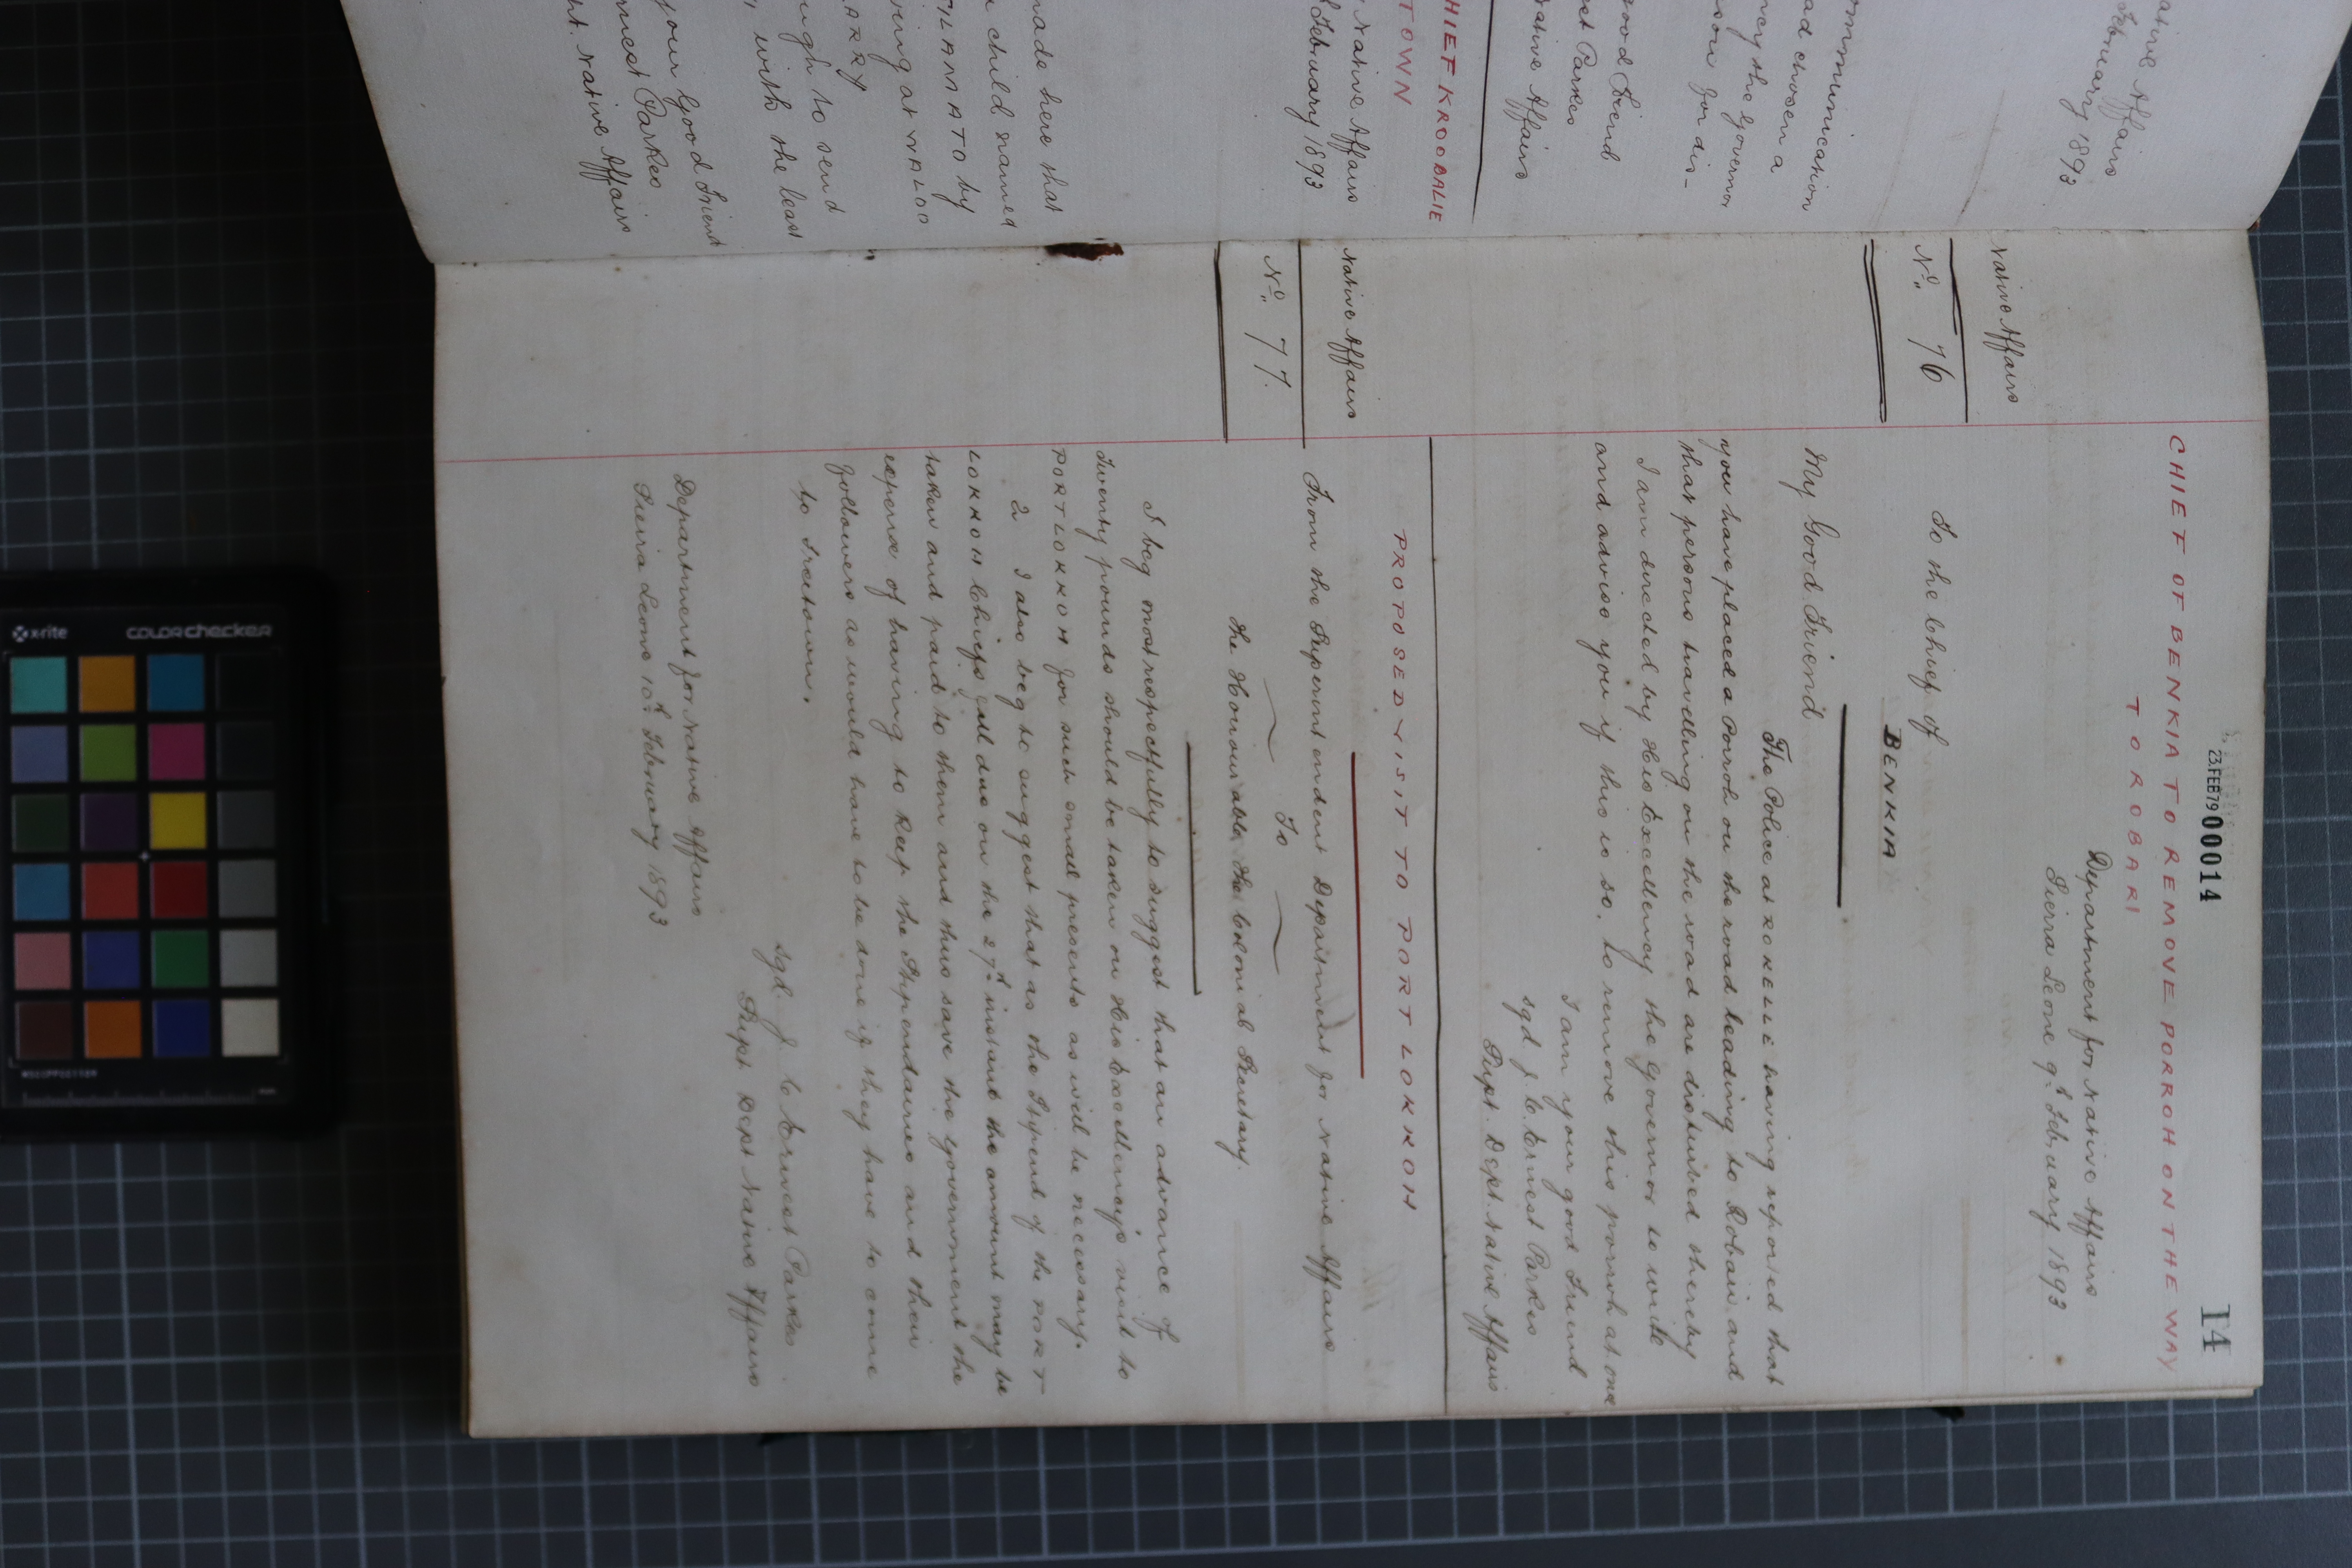 23.FEB79 00014
14
CHIEF OF BENKIA TO REMOVE PORROH ON THE WAY
TO ROBARI
Department for Native Affairs
Sierra Leone 9th February 1893
Native Affairs
No. 76
To the Chief of
BENKIA
My Good Friend
The Police at ROKELLE having reported that
you have placed a Porroh on the road leading to Robari and
that persons travelling on the road are disturbed thereby
I am directed by His Excellency the Governor to write
and advise you if this is so, to remove this porroh at once
I am your good Friend
sgd J. C. Ernest Parkes
Supt. Dept. Native Affairs
PROPOSED VISIT TO PORT LOKKOH
Native Affairs
No. 77.
From the Superintendent Department for Native Affairs
To
The Honourable the Colonial Secretary.
I beg most respectfully to suggest that an advance of
Twenty pounds should be taken on His Excellency's visit to
PORT LOKKOH for such small presents as will be necessary.
2 I also beg to suggest that as the Stipend of the PORT
LOKKOH Chiefs fall due on the 27th instant the amount may be
taken and paid to them and thus save the Government the
expense of having to keep the Stipendaries and their
followers as would have to be done if they have to come
to Freetown.
sgd. J. C. Ernest Parkes
Supt Dept Native Affairs
Department for Native Affairs
Sierra Leone 10th February 1893
ative Affairs
February 1893
ommunication
ad chosen a
ncy the Governor
son for dis-
good Friend
est Parkes
Native Affairs
HIEF KROOBALIE
TOWN
Native Affairs
February 1893
made here that
child named
FILAMATO by
ving at WALOO
ARRY
ugh to send
with the least
your Good Friend
rnest Parkes
nt. Native Affairs
x-rite
colorchecker